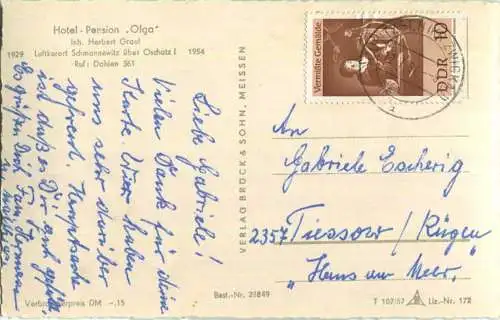 Hotel-Pension „Olga"
Inh. Herbert Graul
1929 Luftkurort Schmannewitz über Oschatz I 1954
Ruf: Dahlen 361
Liebe Gabriele!
Vielen Dank für Deine
Karte. Wir haben
uns sehr darüber
gefreut. Hauptsache
ist daß es Dir gut gefällt.
Es grüßen Dich Fam.
VERLAG BRÜCK & SOHN, MEISSEN
Vermißte Gemälde
DDR 10
An
Gabriele Escherig
2357 Tiessow/Rügen
„Haus am Meer"
Verbraucherpreis DM –,15
Best.-Nr. 21849
T 107/57
Liz.-Nr. 172